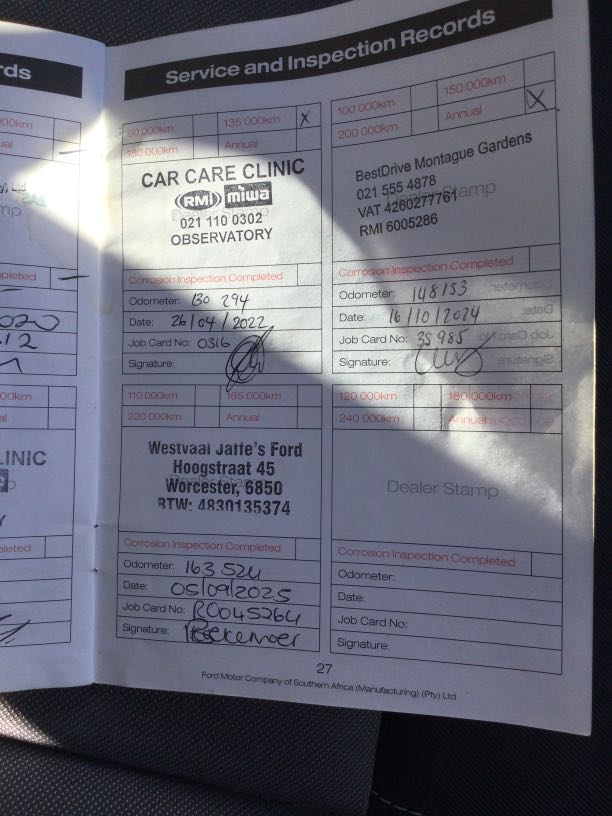 rds
Service and Inspection Records
000km
al
mp
pleted
2020
12
00km
al
LINIC
p
Y
pleted
90 000km
135 000km
X
180 000km
Annual
CAR CARE CLINIC
RMI
miwa
021 110 0302
OBSERVATORY
Corrosion Inspection Completed
Odometer: 130 294
Date: 26/04/2022
Job Card No: 0316
Signature:
100 000km
150 000km
200 000km
Annual
X
BestDrive Montague Gardens
021 555 4878
Dealer Stamp
VAT 4260277761
RMI 6005286
Corrosion Inspection Completed
Odometer: 148153
Date: 16/10/2024
Job Card No: 35985
Signature:
110 000km
165 000km
220 000km
Annual
Westvaal Jaffe's Ford
Hoogstraat 45
Worcester, 6850
BTW: 4830135374
Corrosion Inspection Completed
Odometer: 163 524
Date: 05/09/2025
Job Card No: R0045264
Signature:
120 000km
180 000km
240 000km
Annual
Dealer Stamp
Corrosion Inspection Completed
Odometer:
Date:
Job Card No:
Signature:
27
Ford Motor Company of Southern Africa (Manufacturing) (Pty) Ltd